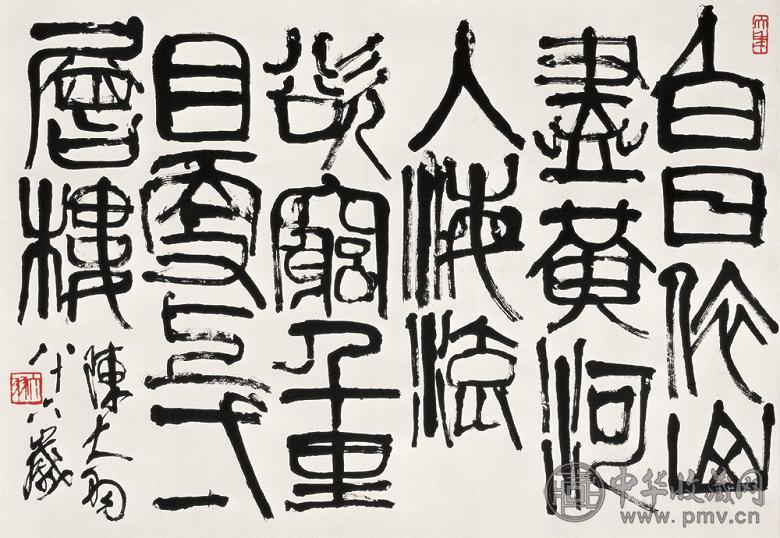 白日依山
盡黄河
入海流
欲窮千里
目更上弌
層樓
陳大羽
八十六歲
中华收藏网
www.pmv.cn